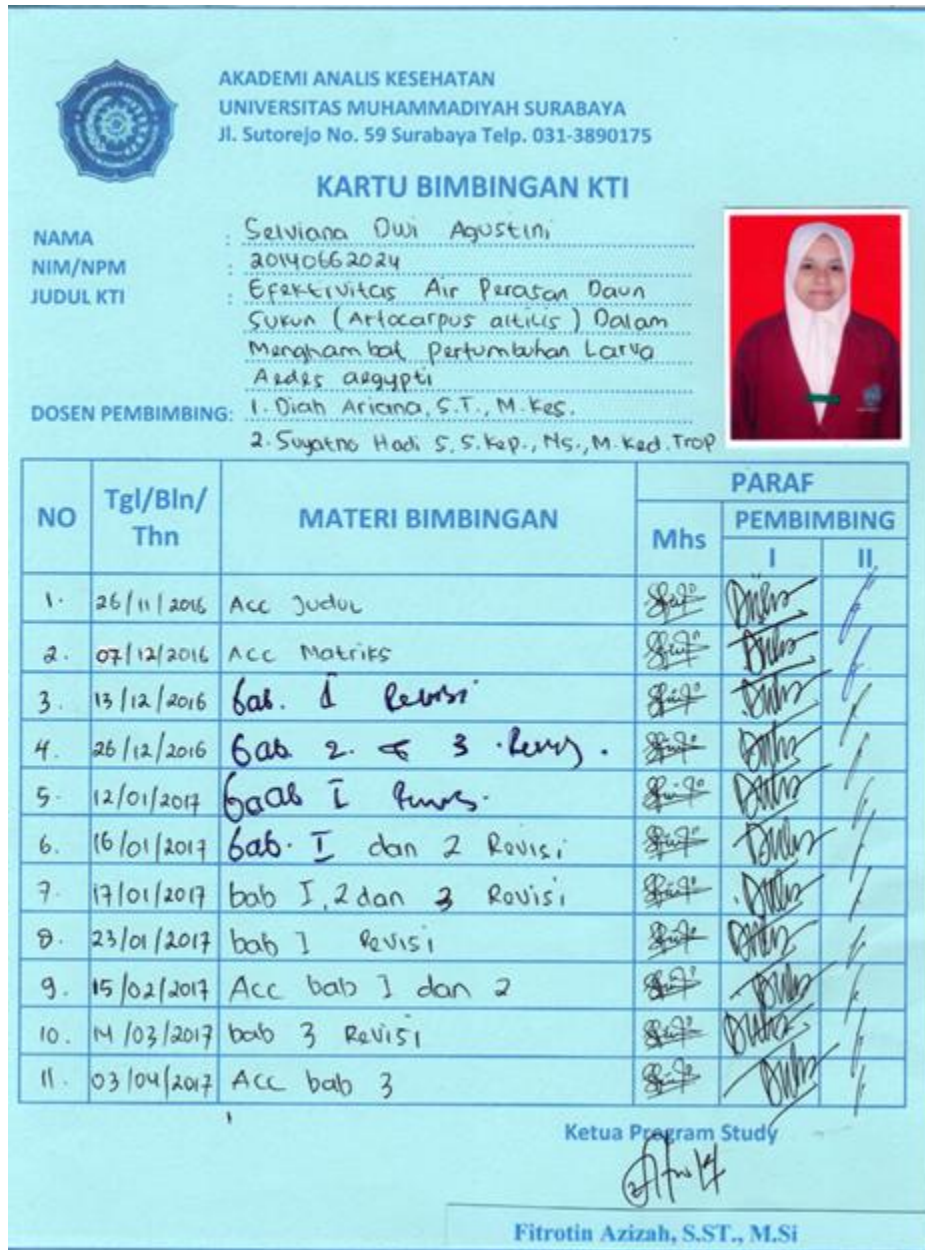 AKADEMI ANALIS KESEHATAN
UNIVERSITAS MUHAMMADIYAH SURABAYA
Jl. Sutorejo No. 59 Surabaya Telp. 031-3890175
KARTU BIMBINGAN KTI
NAMA : Selviana Dwi Agustini
NIM/NPM : 20140662024
JUDUL KTI : Efektivitas Air Perasan Daun
Sukun (Artocarpus altilis) Dalam
Menghambat Pertumbuhan Larva
Aedes aegypti
DOSEN PEMBIMBING: 1. Diah Ariana, S.T., M.Kes.
2. Suyatno Hadi S, S.Kep., Ns., M.Ked.Trop
NO Tgl/Bln/Thn MATERI BIMBINGAN PARAF
Mhs PEMBIMBING
I II
1. 26/11/2016 Acc Judul
2. 07/12/2016 Acc Matriks
3. 13/12/2016 bab. 1 Revisi
4. 26/12/2016 bab 2. & 3 .
5. 12/01/2017 I
6. 16/01/2017 bab. I dan 2 Revisi
7. 17/01/2017 bab I, 2 dan 3 Revisi
8. 23/01/2017 bab I Revisi
9. 15/02/2017 Acc bab I dan 2
10. 14/03/2017 bab 3 Revisi
11. 03/04/2017 Acc bab 3
Ketua Program Study
Fitrotin Azizah, S.ST., M.Si